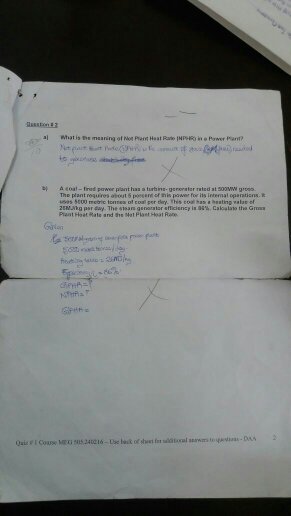 Question # 2
a) What is the meaning of Net Plant Heat Rate (NPHR) in a Power Plant?
Net plant Heat Rate (NPHR) is the amount of needed
to generate
b) A coal – fired power plant has a turbine- generator rated at 500MW gross.
The plant requires about 5 percent of this power for its internal operations. It
uses 5000 metric tonnes of coal per day. This coal has a heating value of
26MJ/kg per day. The steam generator efficiency is 86%. Calculate the Gross
Plant Heat Rate and the Net Plant Heat Rate.
Given
500MW power plant
5,000 metric tonnes / day
Heating value = 26MJ/kg
Efficiency = 86%
GPHR = ?
NPHR = ?
GPHR =
Quiz # 1 Course MEG 505:240216 – Use back of sheet for additional answers to questions - DAA 2